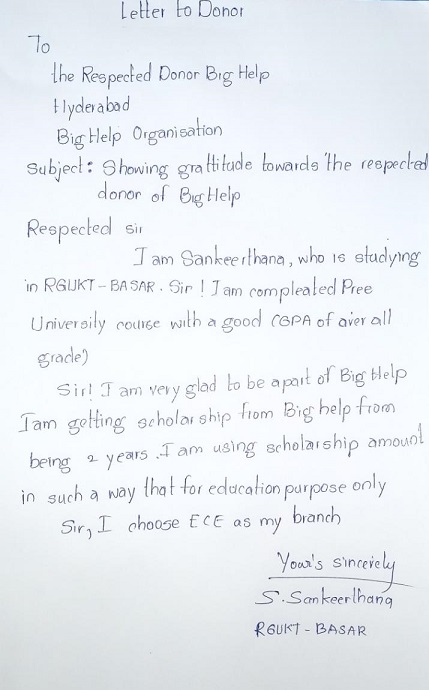 Letter to Donor
To
the Respected Donor Big Help
Hyderabad
Big Help Organisation
Subject: Showing grattitude towards the respected
donor of Big Help
Respected sir
I am Sankeerthana, who is studying
in RGUKT-BASAR. Sir! I am compleated Pree
University course with a good CGPA of over all
grade)
Sir! I am very glad to be apart of Big Help
I am getting scholarship from Big help from
being 2 years. I am using scholarship amount
in such a way that for education purpose only
Sir, I choose ECE as my branch
Your's sincerely
S. Sankeerthana
RGUKT-BASAR